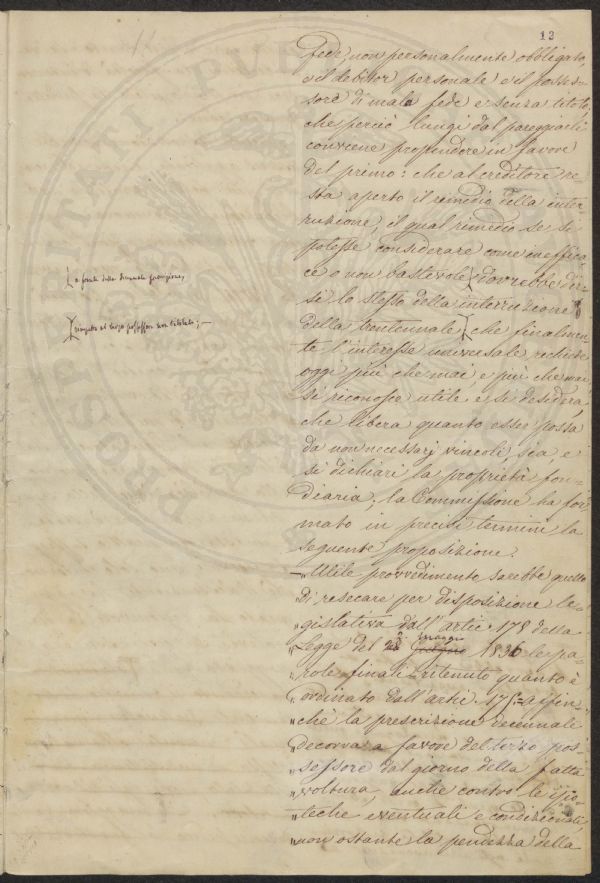 12
fede, non personalmente obbligato,
e il debitor personale, e il posses-
sore di mala fede e senza titolo;
che perciò lungi dal pareggiarli
conviene propendere in favore
del primo: che al creditore re-
sta aperto il rimedio della inter-
ruzione, il qual rimedio se si
potesse considerare come ineffica
ce o non bastevole dovrebbe dir-
si lo stesso della interruzione
della trentennale che finalmen-
te l'interesse universale richiede
oggi più che mai e più che mai
si riconosce utile e si desidera,
che libera quanto esser possa
da non necessarj vincoli, sia e
si dichiari la proprietà fon-
diaria; la Commissione ha for
mato in precisi termini la
seguente proposizione.
"Utile provvedimento sarebbe quello
"di resecare per disposizione le-
"gislativa dall'artic: 178 della
maggio
"Legge del 2 Giugno 1836 le pa-
"role finali = ritenuto quanto è
"ordinato dall'artic: 175 = affin-
"chè la prescrizione decennale
"decorra a favore del terzo pos-
"sessore dal giorno della fatta
"voltura, anche contro le ipo-
"teche eventuali e condizionali,
"non ostante la pendenza della
a fronte della
rimpetto al terzo possessore non titolato; —
PROSPERITATI